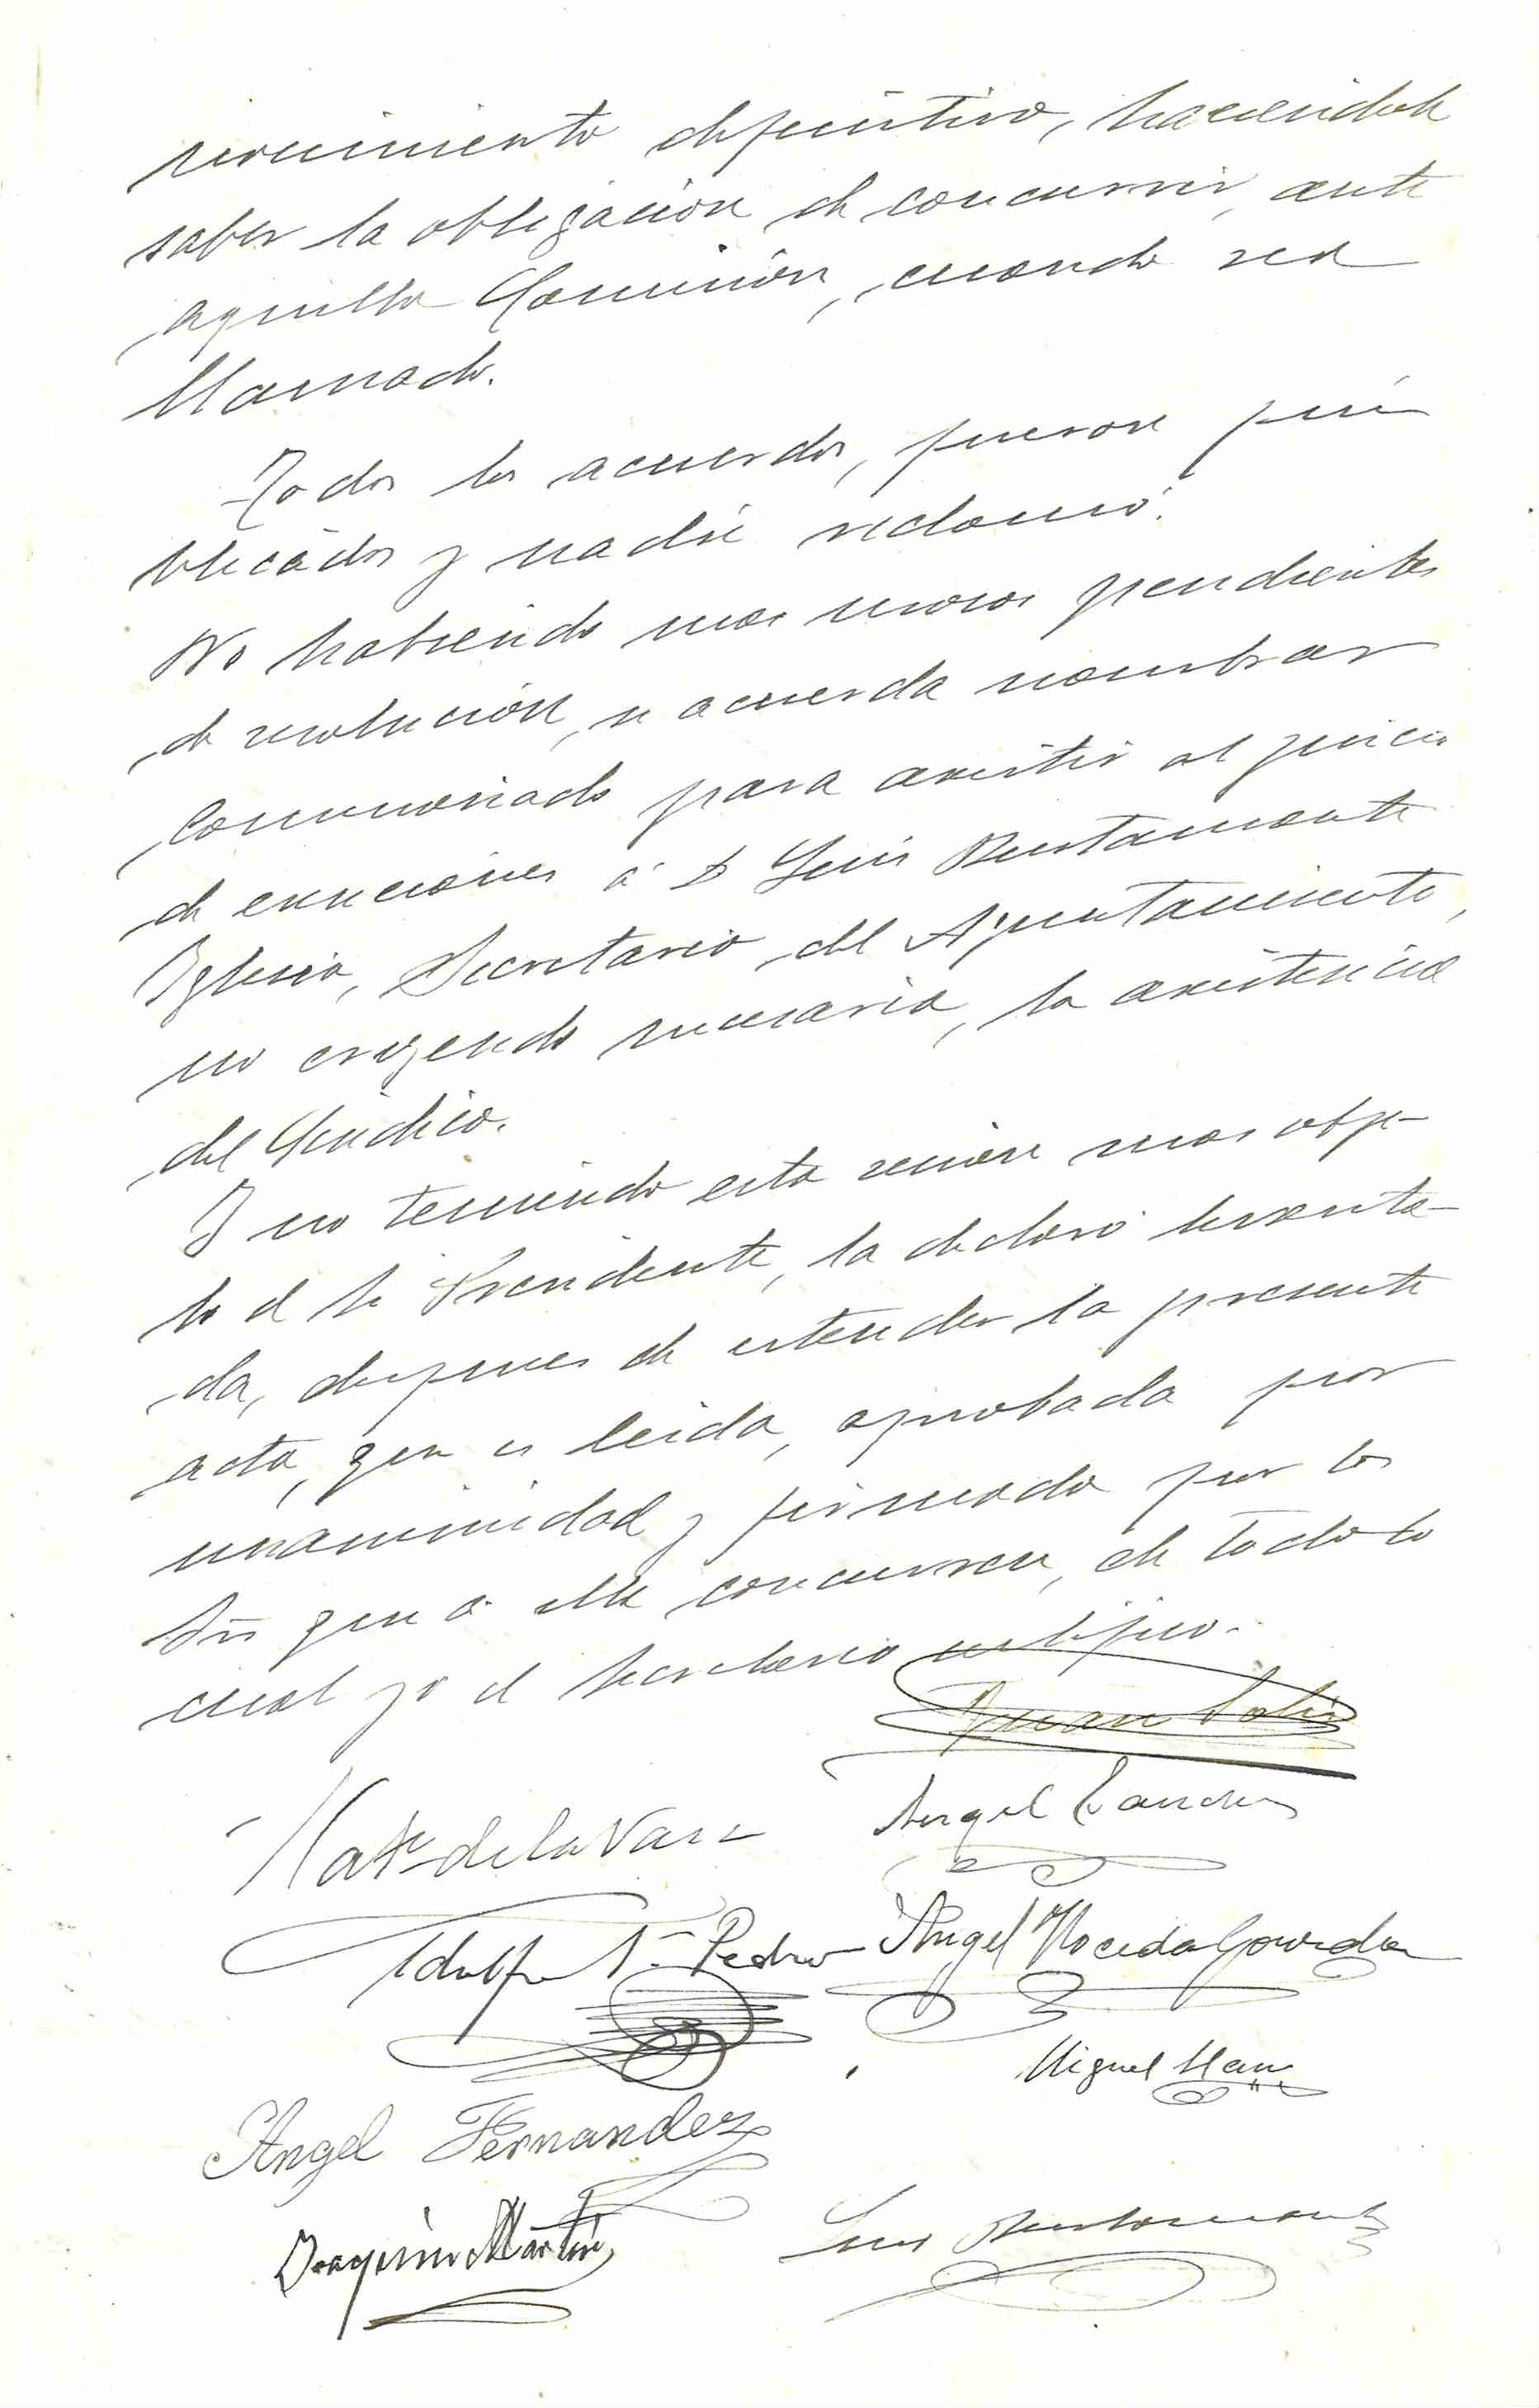 nocimiento definitivo, haciendole
saber la obligación de concurrir, ante
aquella Comisión, cuando sea
llamado.
Todos los acuerdos, fueron pú
blicados y nadie reclamó.
No habiendo mas mozos pendientes
de resolución, se acuerda nombrar
Comisionado para asistir al juicio
de exenciones á D Luis Bustamante
Iglesia, Secretario del Ayuntamiento,
no creyendo necesaria, la asistencia
del Sindico.
Y no teniendo esta sesión mas obje-
to el Sr Presidente, la declaró levanta-
da, despues de estender la presente
acta, que es leida, aprobada por
unanimidad y firmada por los
Srs que á ella concurren, de todo lo
cual yo el Secretario certifico.
Juan
Angel Sanchez
de la
Adolfo Sn Pedro Angel
Miguel
Angel Fernandez
Joaquin Martin
Luis Bustamante